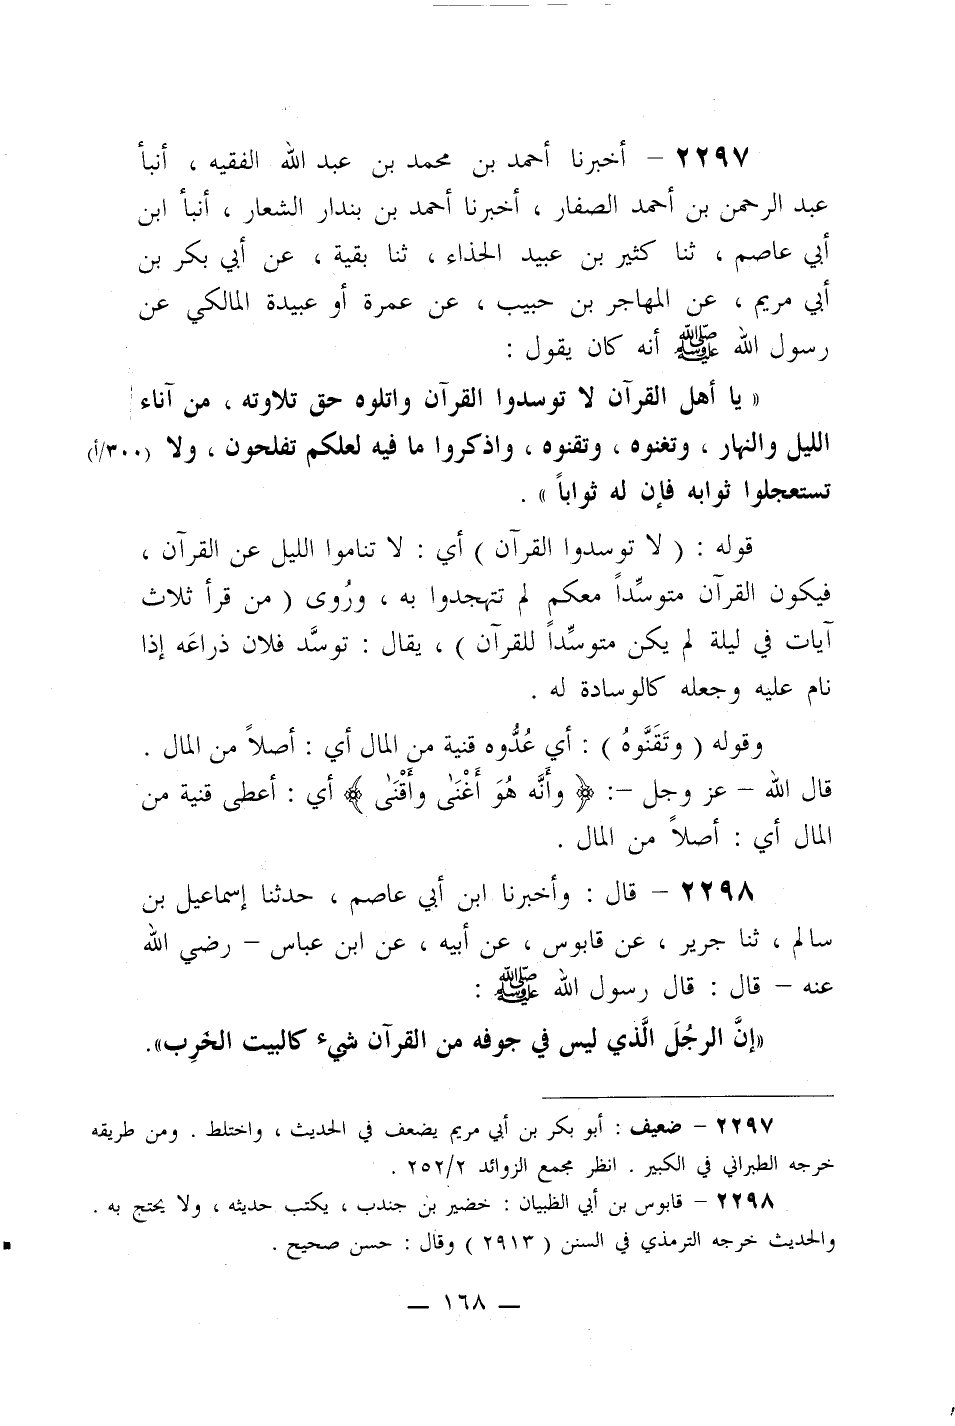 ٢٢٩٧ – أخبرنا أحمد بن محمد بن عبد الله الفقيه ، أنبأ
عبد الرحمن بن أحمد الصفار ، أخبرنا أحمد بن بندار الشعار ، أنبأ ابن
أبي عاصم ، ثنا كثير بن عبيد الحذاء ، ثنا بقية ، عن أبي بكر بن
أبي مريم ، عن المهاجر بن حبيب ، عن عمرة أو عبيدة المالكي عن
رسول الله ﷺ أنه كان يقول :
« يا أهل القرآن لا توسدوا القرآن واتلوه حق تلاوته ، من آناء
الليل والنهار ، وتغنوه ، وتقنوه ، واذكروا ما فيه لعلكم تفلحون ، ولا (٣٠٠/أ)
تستعجلوا ثوابه فإن له ثواباً » .
قوله : ( لا توسدوا القرآن ) أي : لا تناموا الليل عن القرآن ،
فيكون القرآن متوسِّداً معكم لم تتهجدوا به ، ورُوى ( من قرأ ثلاث
آيات في ليلة لم يكن متوسِّداً للقرآن ) ، يقال : توسَّد فلان ذراعَه إذا
نام عليه وجعله كالوسادة له .
وقوله ( وتَقَنَّوهُ ) : أي عُدُّوه قنية من المال أي : أصلاً من المال .
قال الله – عز وجل –: ﴿ وأَنَّه هُوَ أَغْنَىٰ وأَقْنَىٰ ﴾ أي : أعطى قنية من
المال أي : أصلاً من المال .
٢٢٩٨ – قال : وأخبرنا ابن أبي عاصم ، حدثنا إسماعيل بن
سالم ، ثنا جرير ، عن قابوس ، عن أبيه ، عن ابن عباس – رضي الله
عنه – قال : قال رسول الله ﷺ :
«إنَّ الرجُلَ الَّذي ليس في جوفه من القرآن شيء كالبيت الخَرِب».
٢٢٩٧ – ضعيف : أبو بكر بن أبي مريم يضعف في الحديث ، واختلط . ومن طريقه
خرجه الطبراني في الكبير . انظر مجمع الزوائد ٢٥٢/٢ .
٢٢٩٨ – قابوس بن أبي الظبيان : خضير بن جندب ، يكتب حديثه ، ولا يحتج به .
والحديث خرجه الترمذي في السنن ( ٢٩١٣ ) وقال : حسن صحيح .
— ١٦٨ —